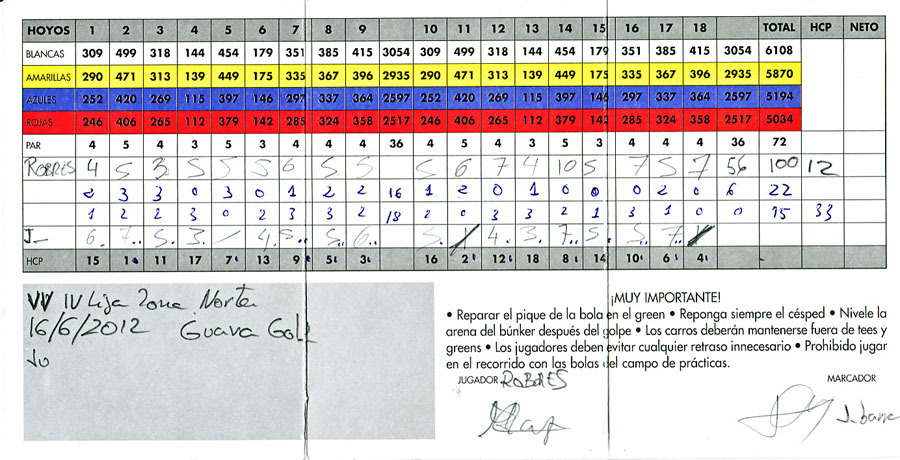 HOYOS 1 2 3 4 5 6 7 8 9 10 11 12 13 14 15 16 17 18 TOTAL HCP NETO
BLANCAS 309 499 318 144 454 179 351 385 415 3054 309 499 318 144 454 179 351 385 415 3054 6108
AMARILLAS 290 471 313 139 449 175 335 367 396 2935 290 471 313 139 449 175 335 367 396 2935 5870
AZULES 252 420 269 115 397 146 297 337 364 2597 252 420 269 115 397 146 297 337 364 2597 5194
ROJAS 246 406 265 112 379 142 285 324 358 2517 246 406 265 112 379 142 285 324 358 2517 5034
PAR 4 5 4 3 5 3 4 4 4 36 4 5 4 3 5 3 4 4 4 36 72
ROBRES 4 5 3 5 5 5 6 5 5 5 6 7 4 10 5 7 5 7 56 100 12
2 3 3 0 3 0 1 2 2 16 1 2 0 1 0 0 0 2 0 6 22
1 2 2 3 0 2 3 3 2 18 2 0 3 3 2 1 3 1 0 0 15 33
J_ 6. 7.. 5. 3. / 4. 5.. 5.. 6.. 5. 4. 3. 7.. 5. 5. 7..
HCP 15 1 11 17 7 13 9 5 3 16 2 12 18 8 14 10 6 4
IV Liga Zona Norte
16/6/2012 Guava Golf
Jo
¡MUY IMPORTANTE!
• Reparar el pique de la bola en el green • Reponga siempre el césped • Nivele la
arena del búnker después del golpe • Los carros deberán mantenerse fuera de tees y
greens • Los jugadores deben evitar cualquier retraso innecesario • Prohibido jugar
en el recorrido con las bolas del campo de prácticas.
JUGADOR ROBRES MARCADOR